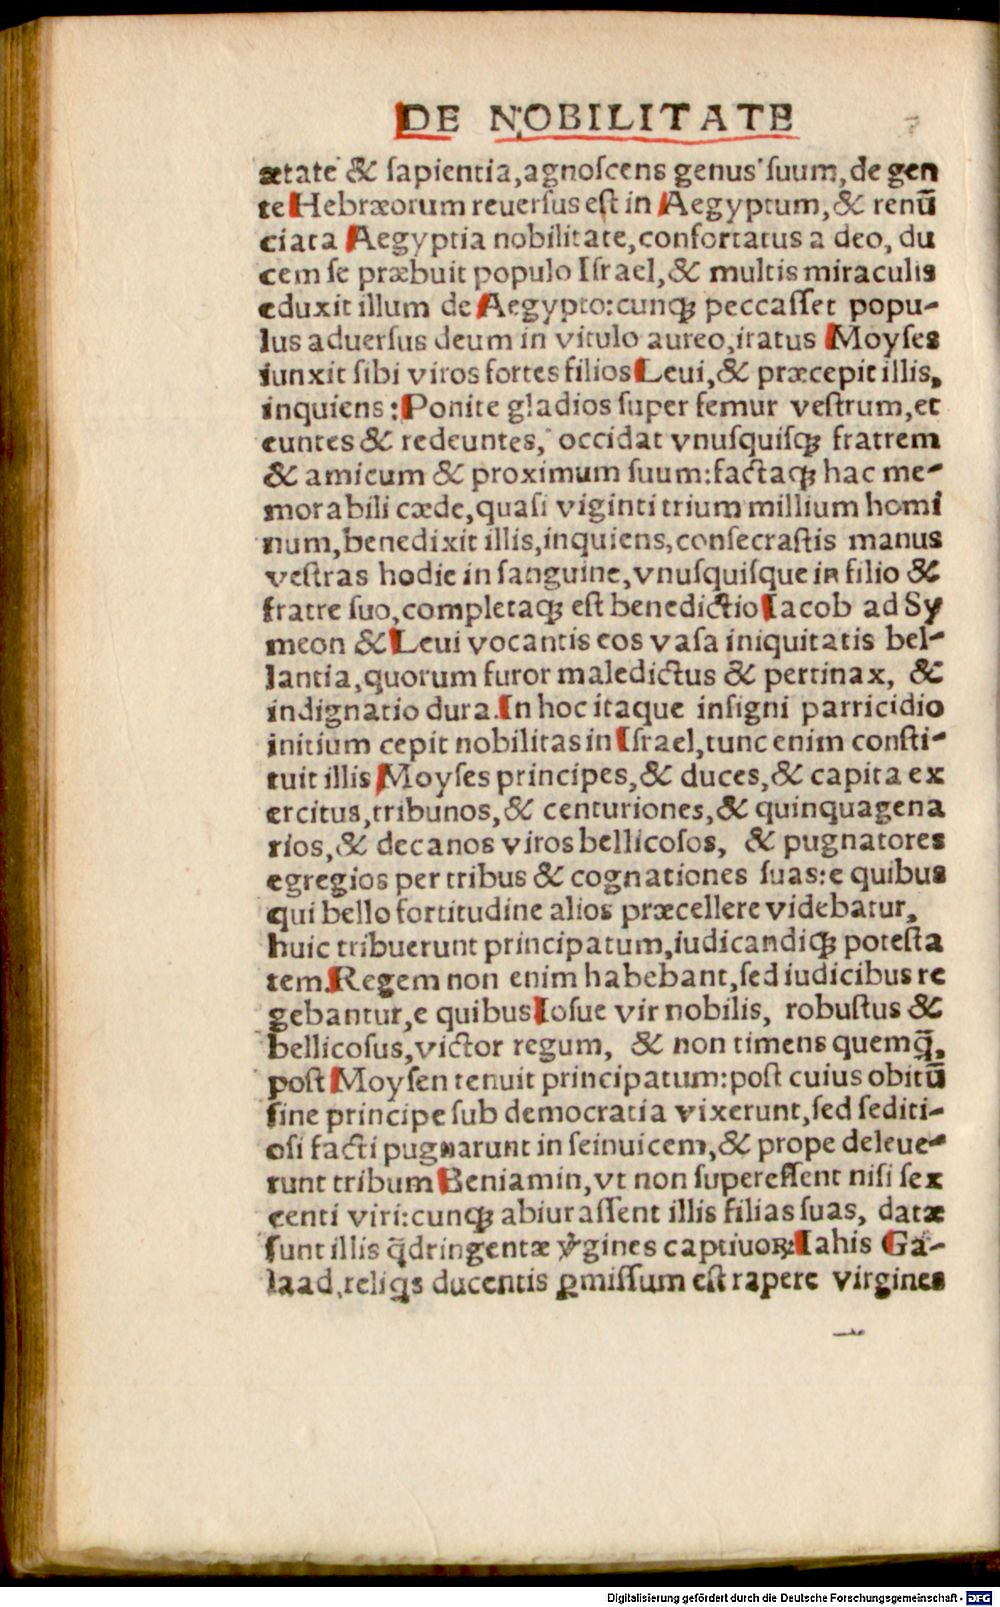 DE NOBILITATE
ætate & ſapientia, agnoſcens genus ſuum, de gen
te Hebræorum reuerſus eſt in Aegyptum, & renū
ciata Aegyptia nobilitate, confortatus a deo, du
cem ſe præbuit populo Iſrael, & multis miraculis
eduxit illum de Aegypto: cunqꝫ peccaſſet popu-
lus aduerſus deum in vitulo aureo, iratus Moyſes
iunxit ſibi viros fortes filios Leui, & præcepit illis,
inquiens: Ponite gladios ſuper femur veſtrum, et
euntes & redeuntes, occidat vnuſquiſqꝫ fratrem
& amicum & proximum ſuum: factaqꝫ hac me-
morabili cæde, quaſi viginti trium millium homi
num, benedixit illis, inquiens, conſecraſtis manus
veſtras hodie in ſanguine, vnuſquiſque in filio &
fratre ſuo, completaqꝫ eſt benedictio Iacob ad Sy
meon & Leui vocantis eos vaſa iniquitatis bel-
lantia, quorum furor maledictus & pertinax, &
indignatio dura. In hoc itaque inſigni parricidio
initium cepit nobilitas in Iſrael, tunc enim conſti-
tuit illis Moyſes principes, & duces, & capita ex
ercitus, tribunos, & centuriones, & quinquagena
rios, & decanos viros bellicoſos, & pugnatores
egregios per tribus & cognationes ſuas: e quibus
qui bello fortitudine alios præcellere videbatur,
huic tribuerunt principatum, iudicandiqꝫ poteſta
tem. Regem non enim habebant, ſed iudicibus re
gebantur, e quibus Ioſue vir nobilis, robuſtus &
bellicoſus, victor regum, & non timens quemq̄,
poſt Moyſen tenuit principatum: poſt cuius obitū
ſine principe ſub democratia vixerunt, ſed ſediti-
oſi facti pugnarunt in ſeinuicem, & prope deleue-
runt tribum Beniamin, vt non ſupereſſent niſi ſex
centi viri: cunqꝫ abiuraſſent illis filias ſuas, datæ
ſunt illis q̄dringentæ v̓gines captiuoꝝ: Iahis Ga-
laad, reliq̓s ducentis ꝑmiſſum eſt rapere virgines
Digitalisierung gefördert durch die Deutsche Forschungsgemeinschaft - DFG